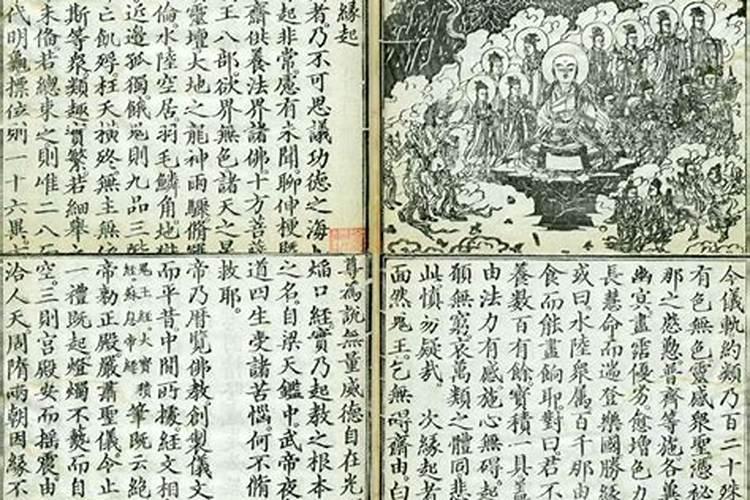 緣起
者乃不可思議功德之海
起非常慮有未聞聊伸梗
齋供養法界諸佛十方菩薩
王八部欲界無色諸天之
靈壇大地之龍神雨驟脩
倫水陸空居羽毛鱗角地獄
近邊孤獨餓鬼則九品三
亡飢殍枉夭橫終無主無
斯等眾類趣實繁若細舉
未脩若總束之則唯二八
代明觀標位別一十六
今儀軌約類乃百二十
有色無色靈感眾聖憑
那之慇懃普齊等施各
幽冥盡霑優劣愈增色力
長慧命而遄登樂國勝
或曰水陸眾屬百千那由
食而能盡餉耶對曰若不
養數百有餘寶積一具蓋
由法力有感施心無礙起
願無窮哀萬類之體同悲
此慎勿疑哉 次緣起者
面然鬼王乞無碍齋由
尊為說無量威德自在光
焰口經實乃起教之根本
之名自梁天鑑中武帝夜
道四生受諸苦惱何不脩
救耶
帝乃曆覽佛教創製儀文
而平昔中間所據經文相
鬼王經大寶積
筆既云絕
帝勑正殿嚴肅聖儀令止
一禮既起燈燭不爇而自
空三則宮殿安而搖震由
洽人天周隋兩朝因緣不